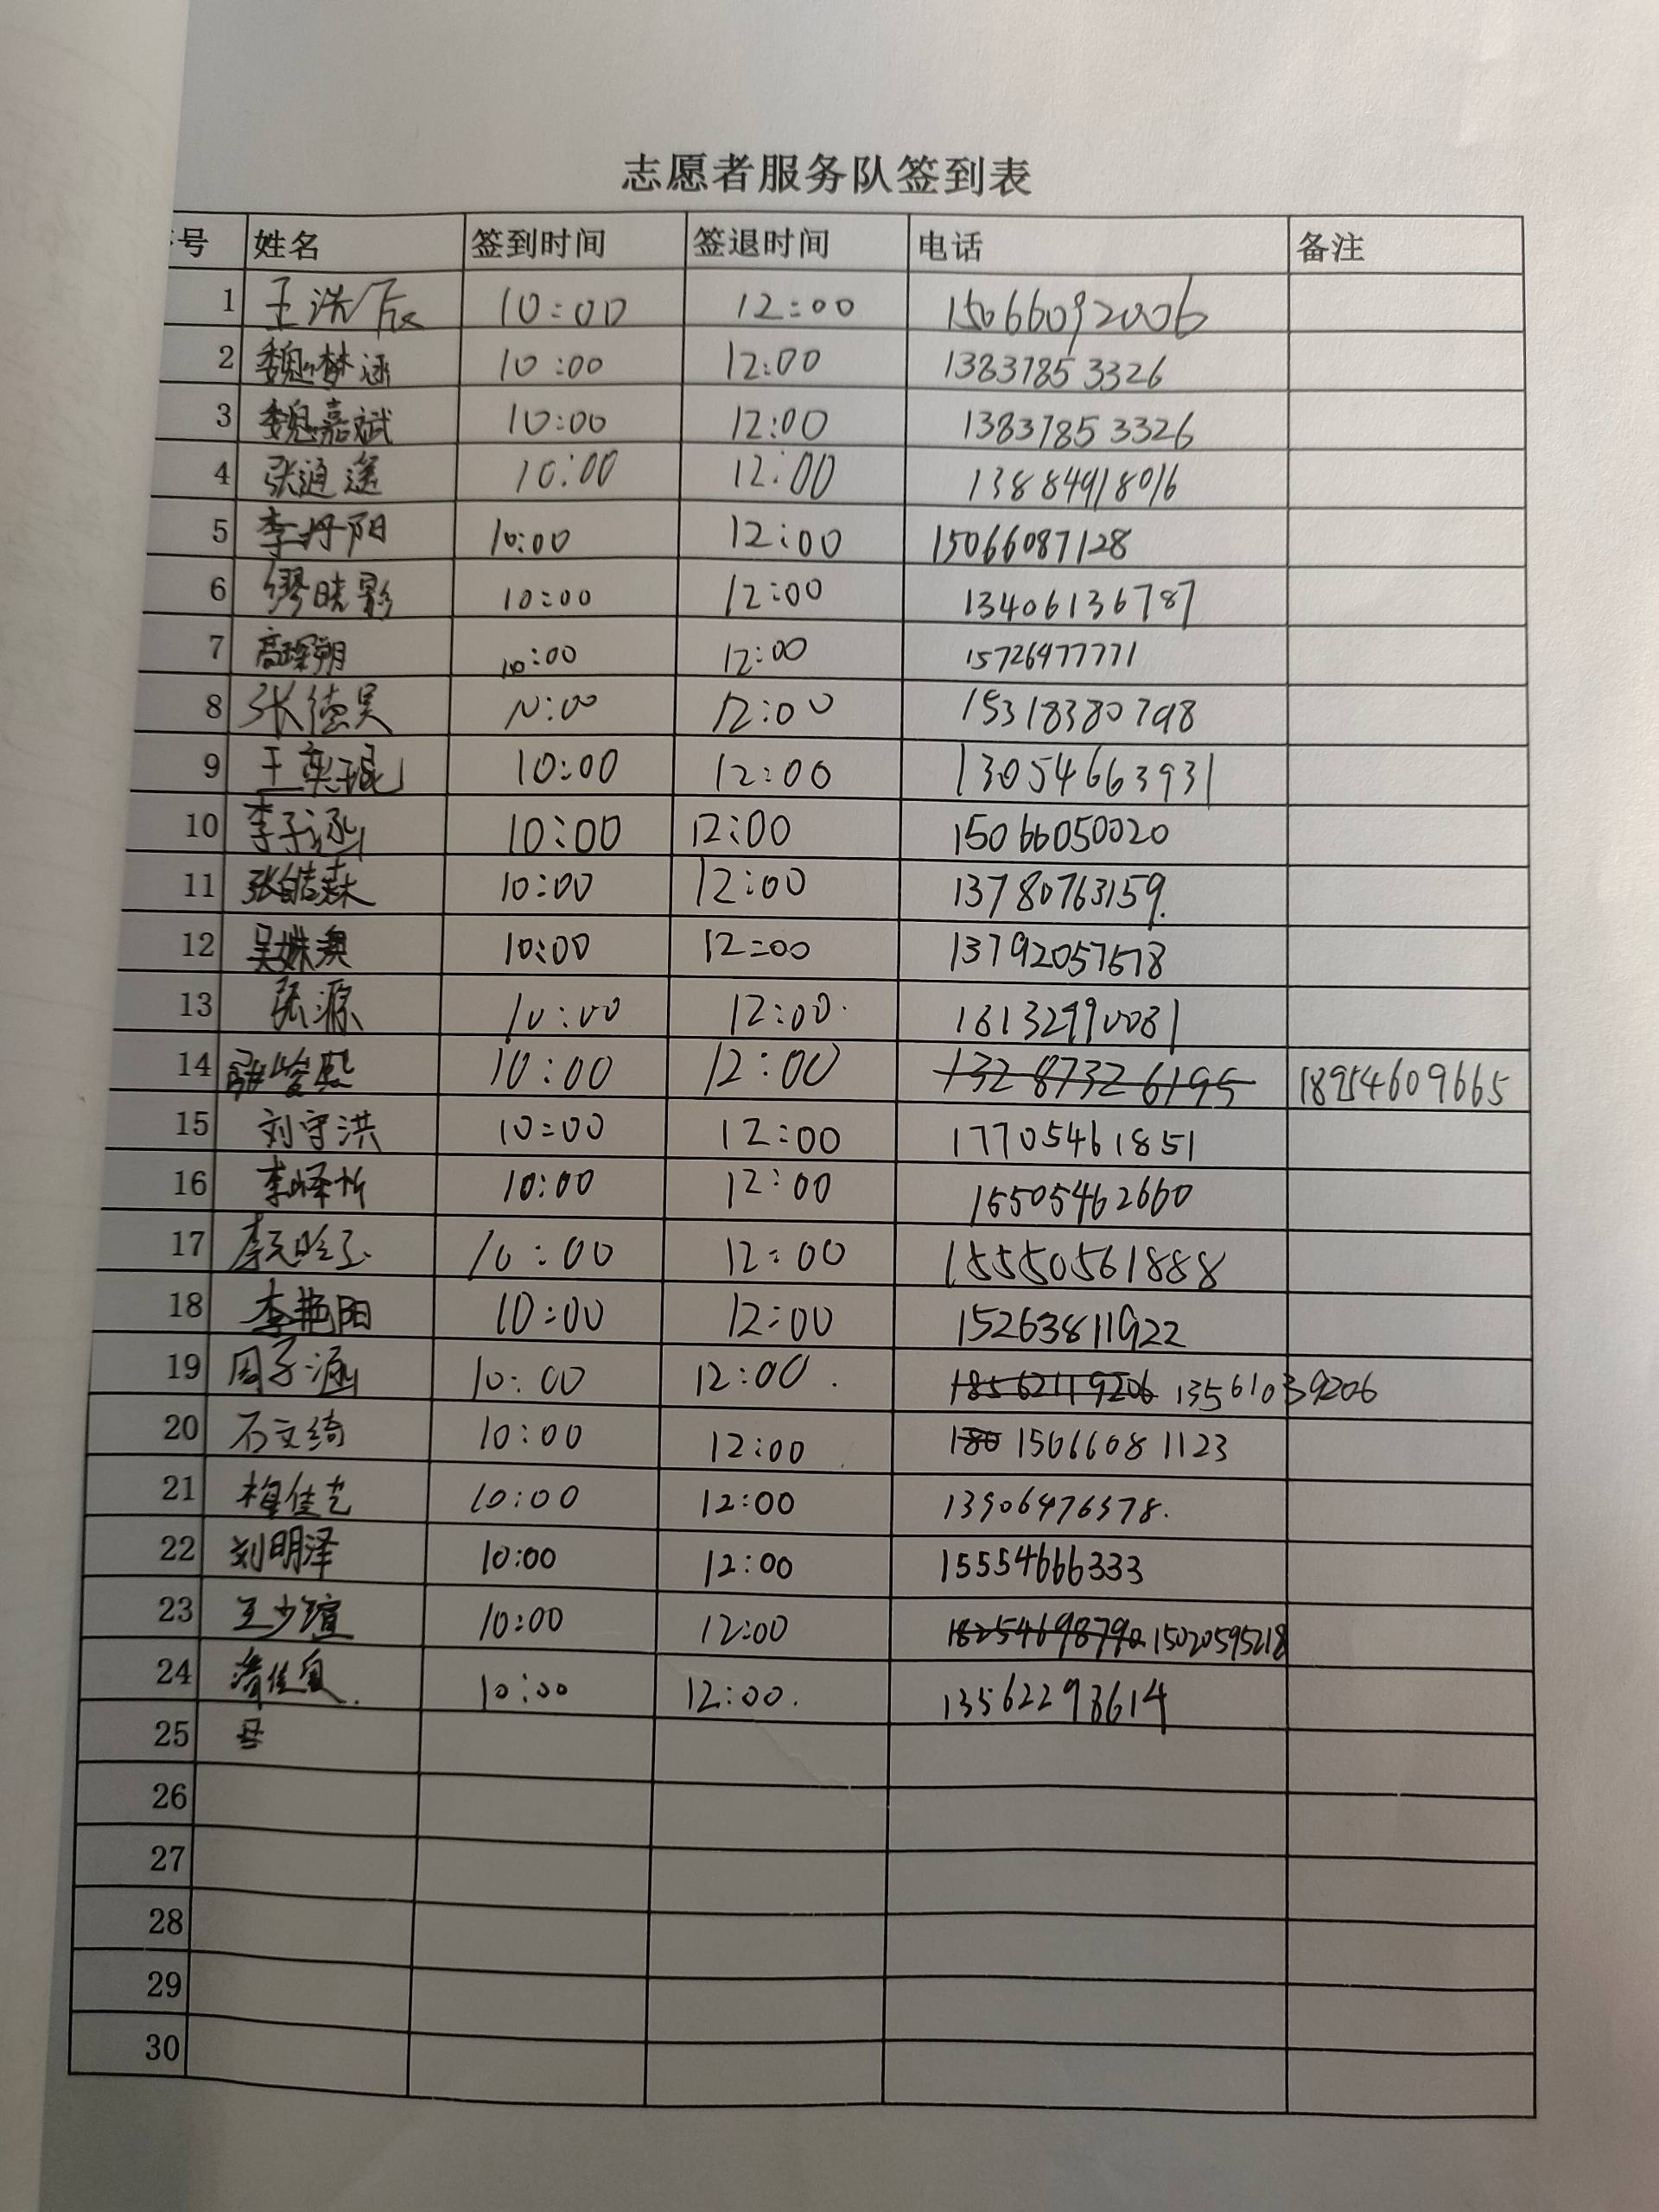 志愿者服务队签到表
号 姓名 签到时间 签退时间 电话 备注
1 王浩辰 10:00 12:00 15066092006
2 魏梦涵 10:00 12:00 13837853326
3 魏嘉斌 10:00 12:00 13837853326
4 张逍遥 10:00 12:00 13884918016
5 李丹阳 10:00 12:00 15066087128
6 缪晓影 10:00 12:00 13406136787
7 10:00 12:00 15726477771
8 张德昊 10:00 12:00 15318380798
9 王奕琨 10:00 12:00 13054663931
10 李子涵 10:00 12:00 15066050020
11 张皓森 10:00 12:00 13780763159.
12 吴姝澳 10:00 12:00
13 张源 10:00 12:00. 18132990081
14 10:00 12:00 13287326195 18954609665
15 刘守洪 10:00 12:00 17705461851
16 李峄忻 10:00 12:00 15505462660
17 10:00 12:00 15550561888
18 李艳阳 10:00 12:00 15263811922
19 周子涵 10:00 12:00. 18562119206 13561039206
20 石文绮 10:00 12:00 180 15066081123
21 梅佳艺 10:00 12:00
22 刘明泽 10:00 12:00 15554666333
23 王少瑄 10:00 12:00 18254698790 15020595218
24 10:00 12:00. 13562298614
25
26
27
28
29
30